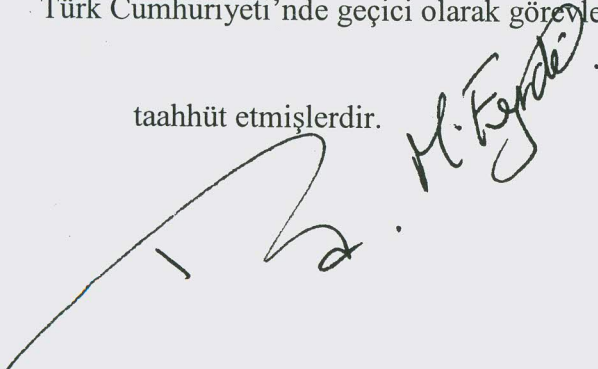 Türk Cumhuriyeti'nde geçici olarak görevle
taahhüt etmişlerdir.
M.